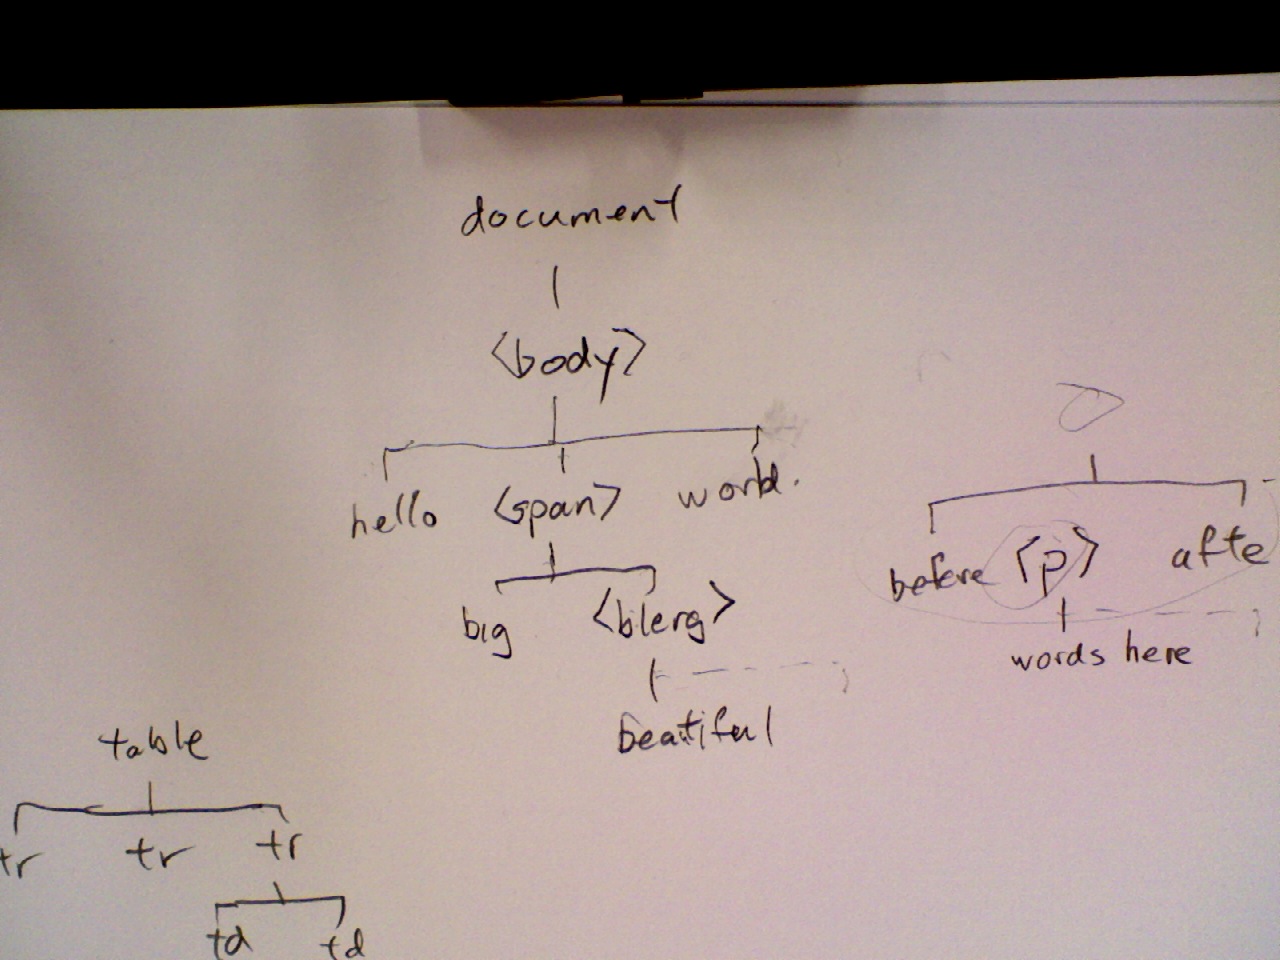 document
<body>
hello <span> world.
big <blerg>
beatiful
before <p> afte
words here
table
tr tr tr
td td